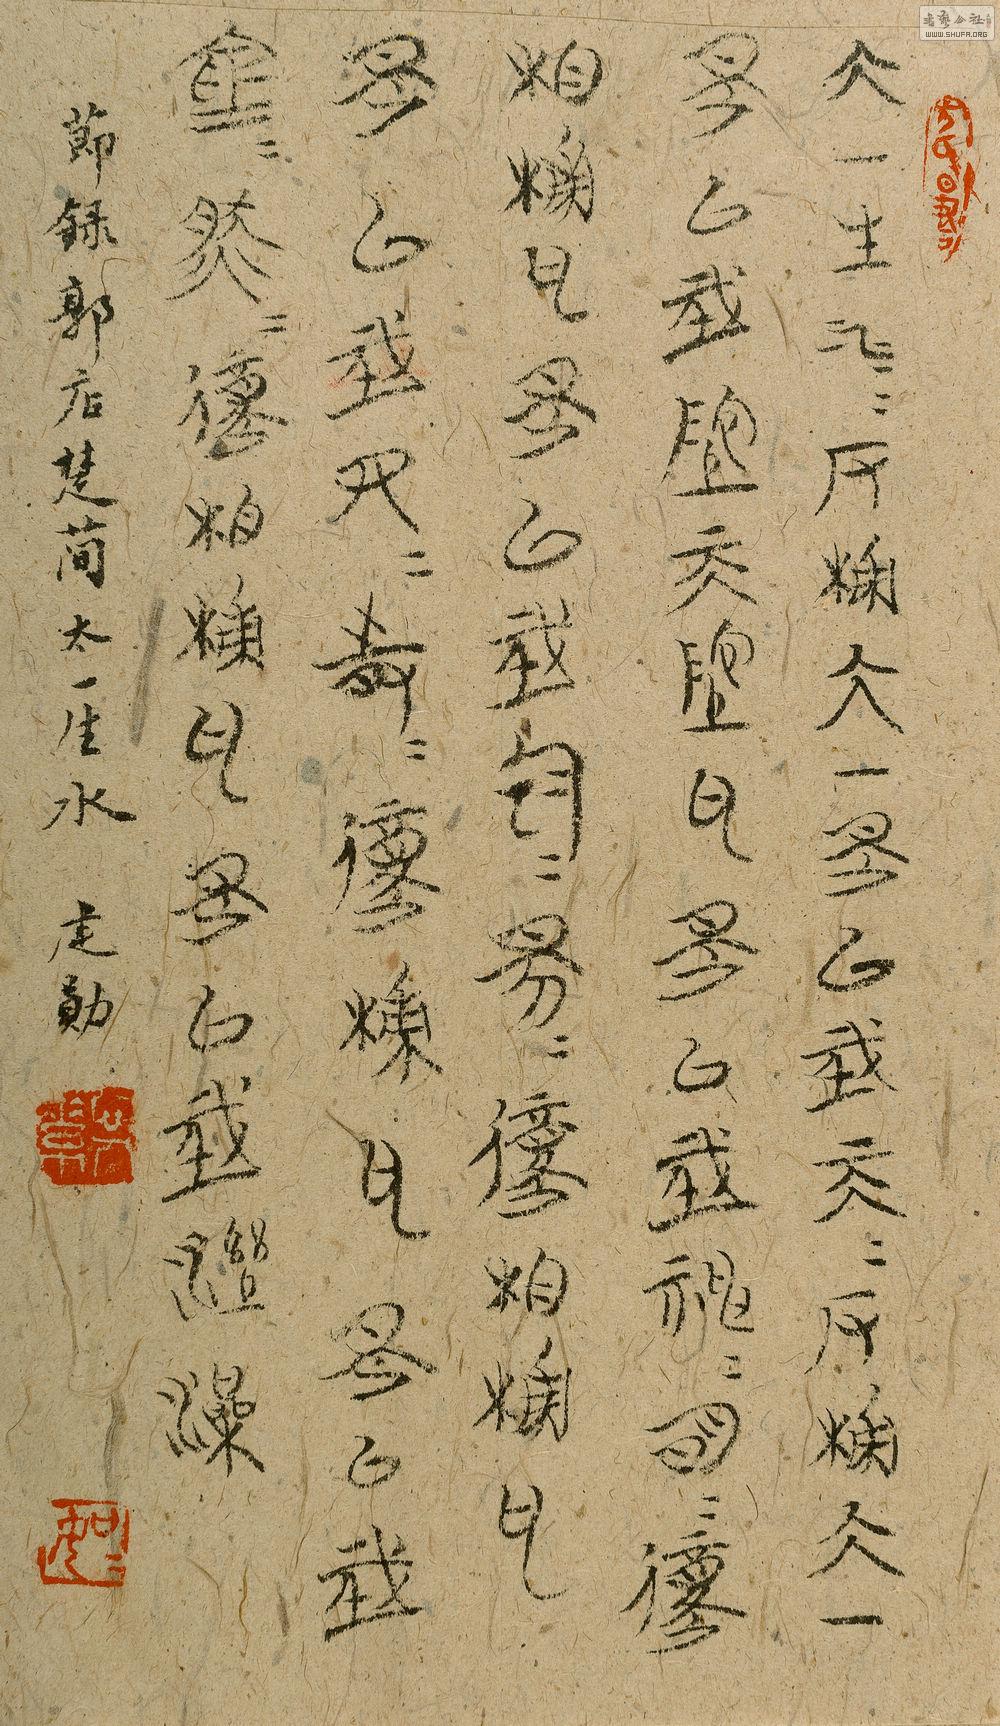 大一生水=反輔大一是以成天=反輔大一
是以成地天地也是以成神=明=復
相輔也是以成陰=陽=復相輔也
是以成四=時=復輔也是以成
倉=然=復相輔也是以成濕燥
節錄郭店楚簡太一生水 勛
書藝公社
WWW.SHUFA.ORG